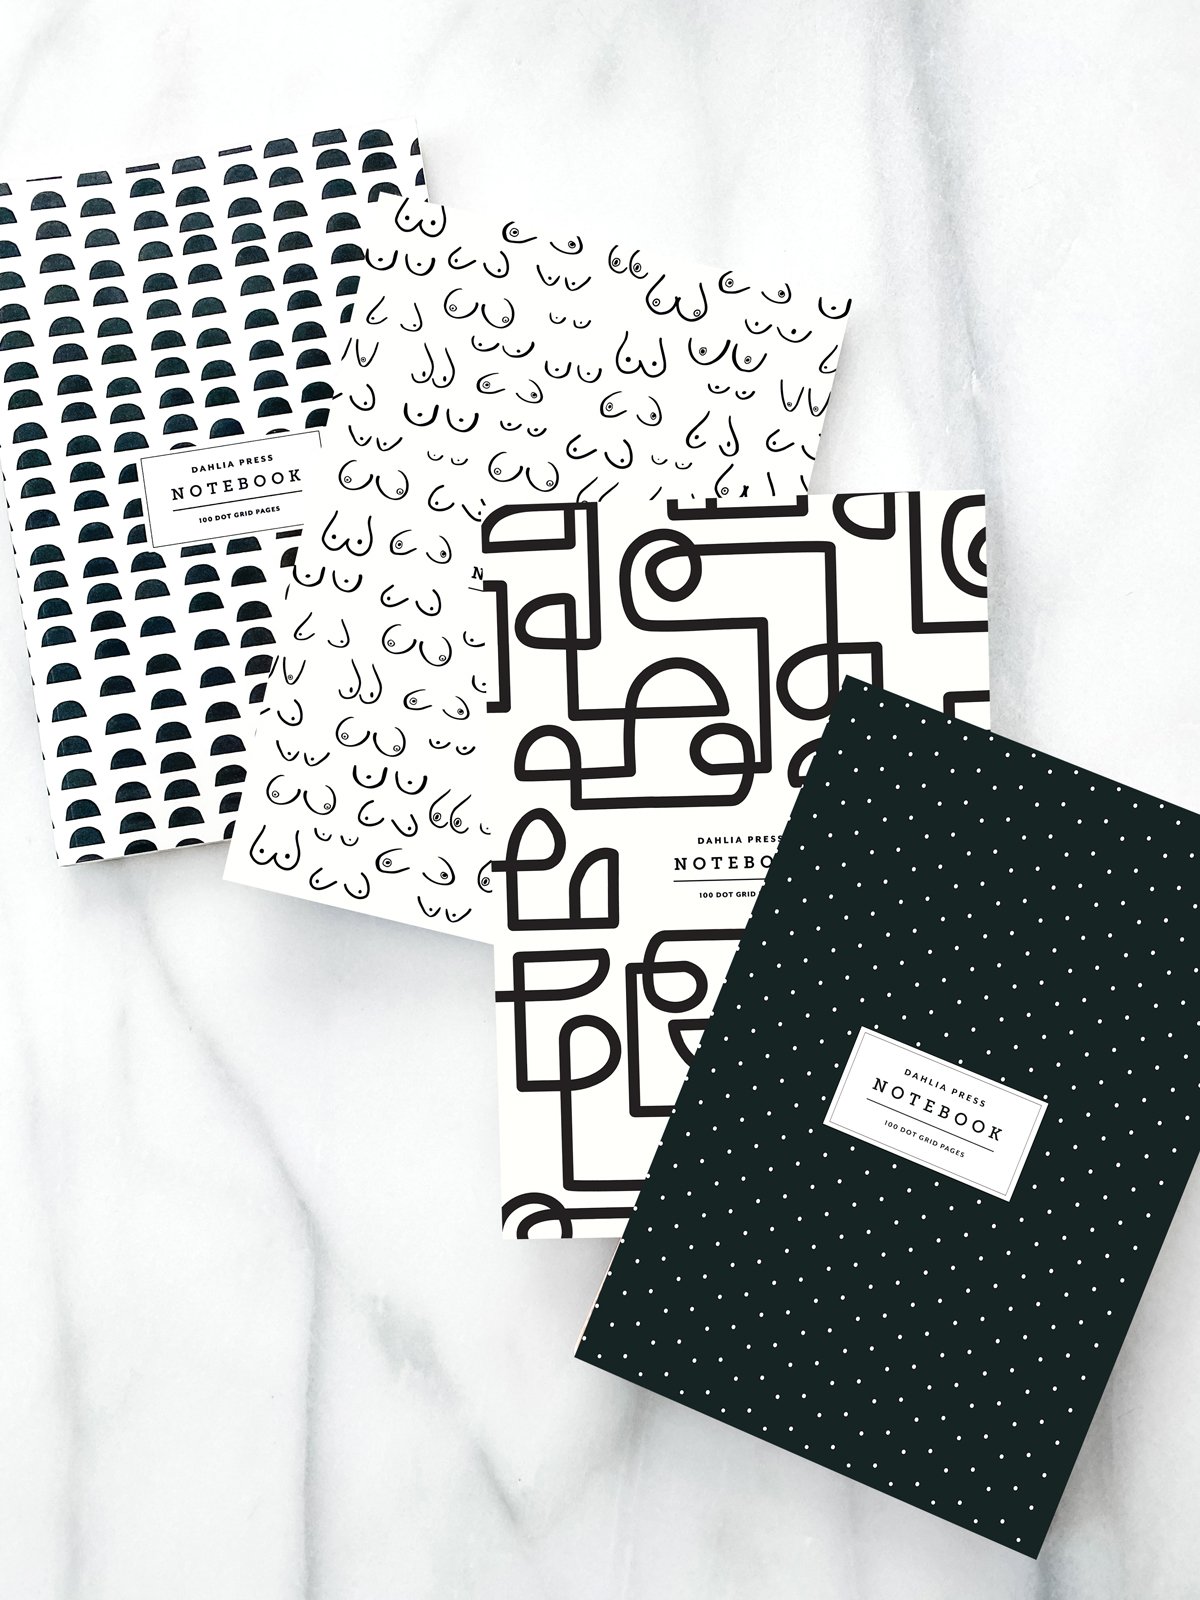 DAHLIA PRESS
NOTEBOOK
100 DOT GRID PAGES
N
DAHLIA PRESS
NOTEBO
100 DOT GRID
DAHLIA PRESS
NOTEBOOK
100 DOT GRID PAGES